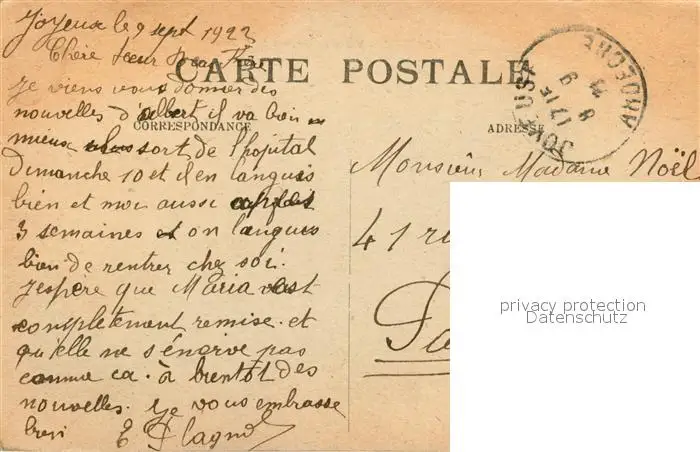 Joyeuse le 9 sept 1922
Chère soeur Beau Frère
CARTE POSTALE
Je viens vous donner des
nouvelles d'albert il va bien
mieux sort de l'hopital
CORRESPONDANCE
dimanche 10 et il en languis
bien et moi aussi après
3 semaines on languis
bien de rentrer chez soi.
J'espère que Maria est
completement remise. et
qu'elle ne s'énerve pas
comme ca. à bientôt des
nouvelles. Je vous embrasse
bien E
ADRESSE
Monsieur Madame Noël
41 ru
Pa
JOYEUSE
ARDECHE
17 15
9
privacy protection
Datenschutz